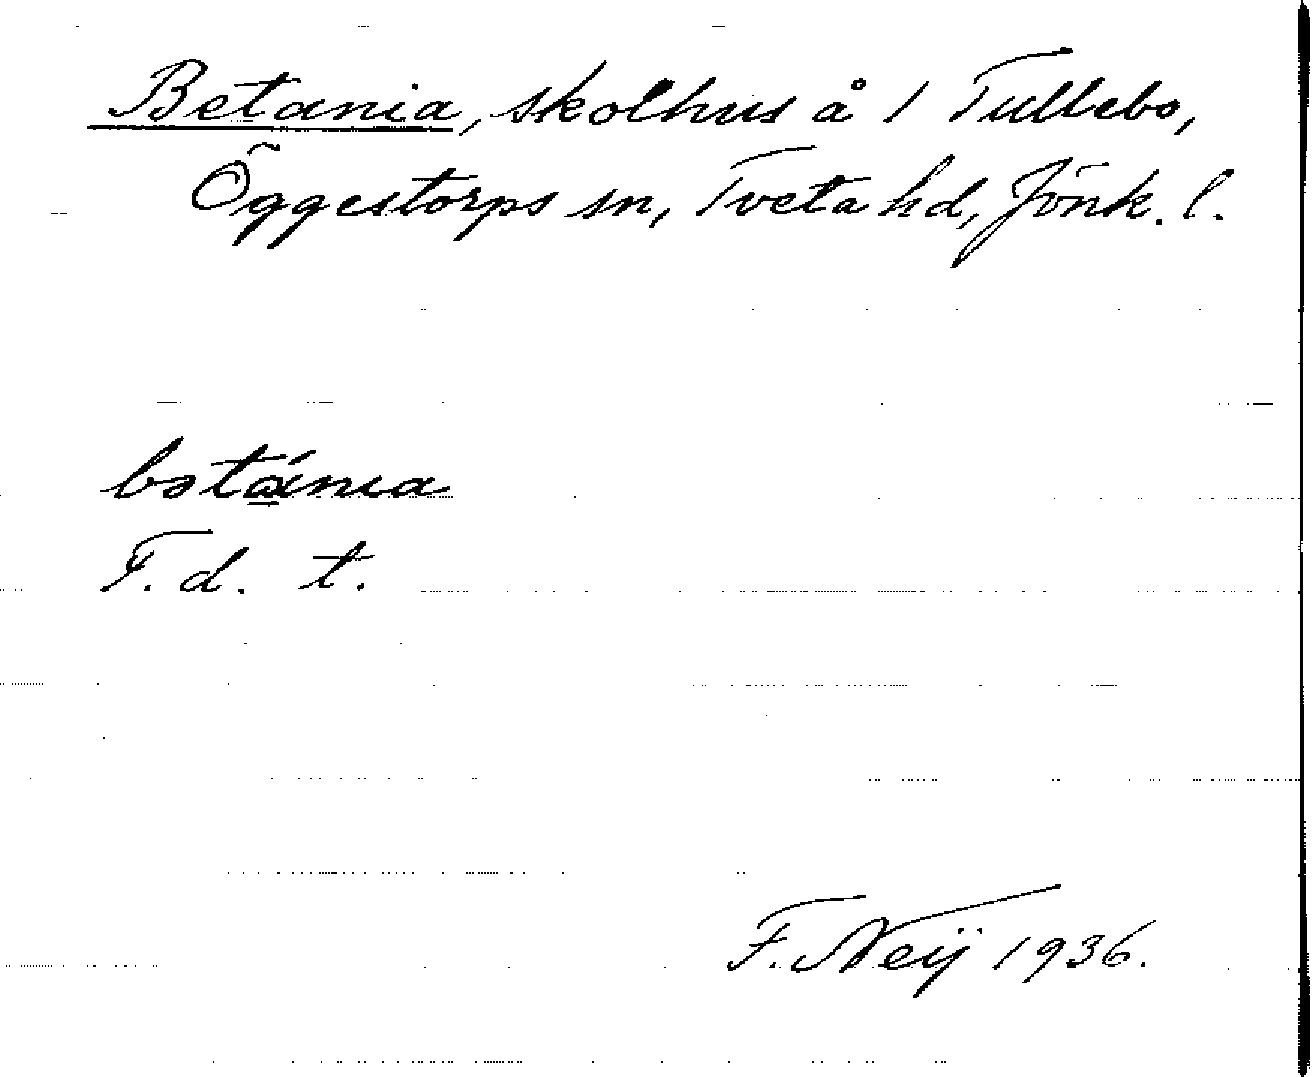 Betania, skolhus å 1 Tullebo,
Öggestorps sn, Tveta hd, Jönk. l.
botánia
F. d. t.
F. Neij 1936.